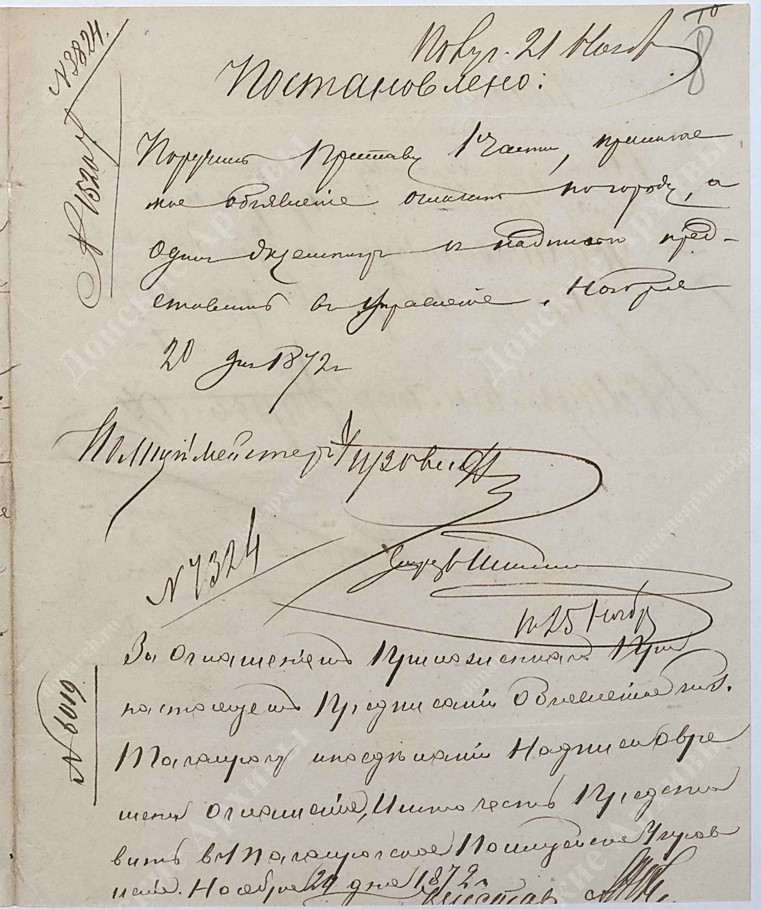 № 3824.
Получ. 21 Нояб
8
Постановлено:
№ 15207
Поручить Приставу 1 Части, прилагае
мое объявление огласить по городу, а
один экземпляр съ надписью пред-
ставить въ управленіе. Ноября
20 дня 1872 г
Полицймейстеръ
№ 7324
25 Нояб
За оглашеніемъ приложеннаго при
настоящемъ предписаніи объявленія по г.
№ 6019
Таганрогу и надписи о вре
мени оглашенія, честь предста
вить въ Таганрогское Полицейское Управ
леніе. Ноября 24 дня 1872 г.
Приставъ